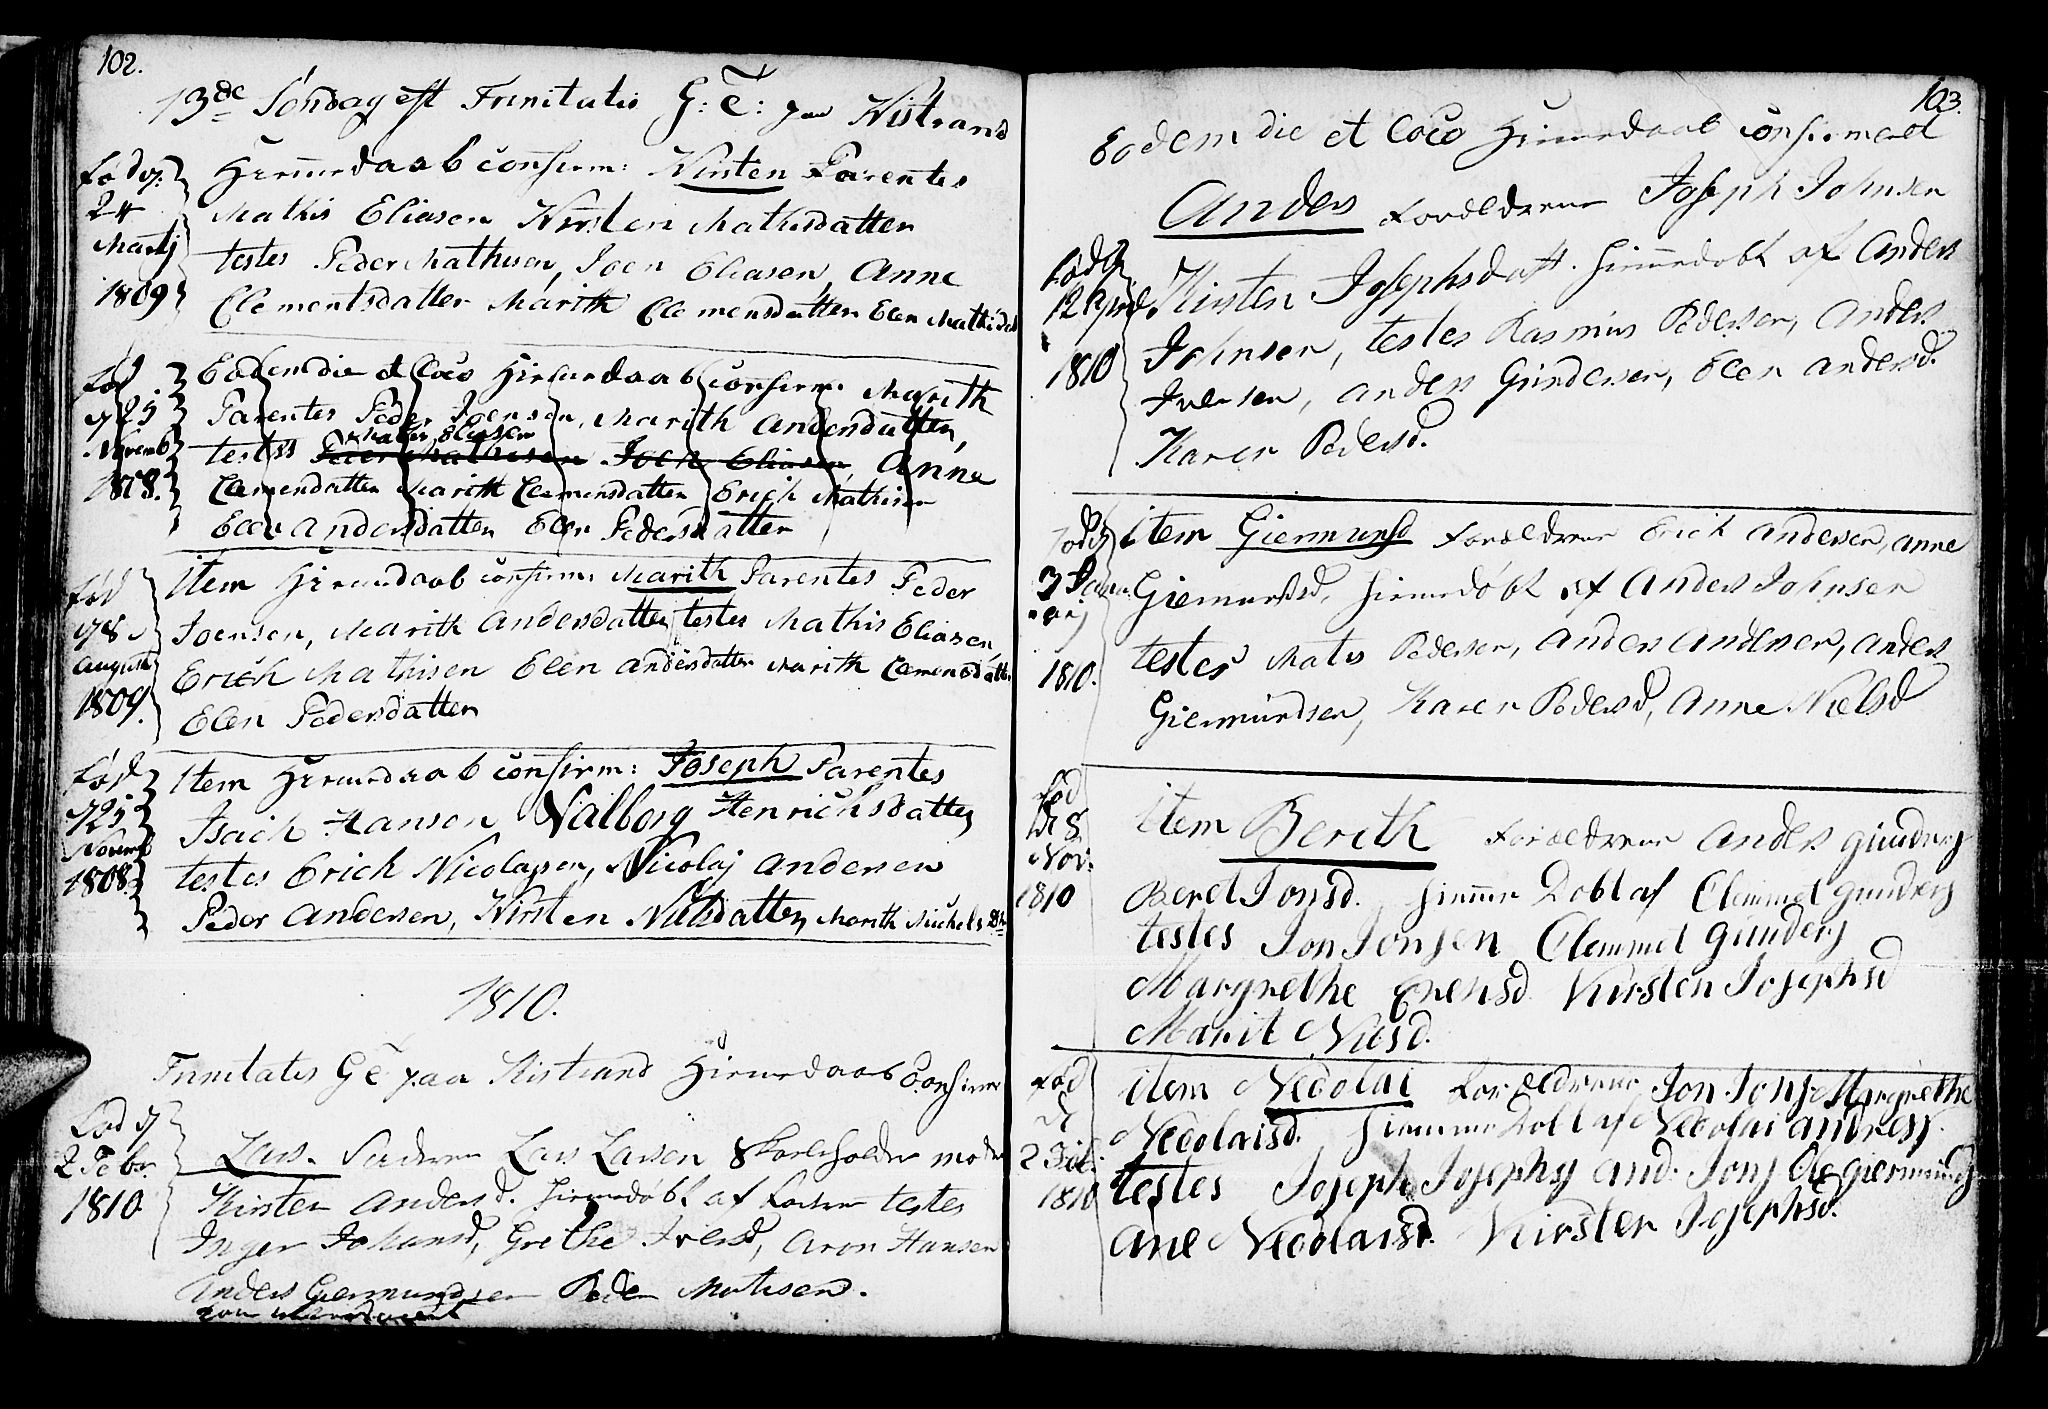 102.
13de Søndag eft Trinitatis G: T: paa Kistrand
fød d. Hiemedaab confirm: Kirsten Parentes
24 Mathis Eliasen Kirsten Mathisdatter
Martj testes Peder Mathisen, Joen Eliasen, Anne
1809 Clementsdatter Marith Clemensdatter Elen Mathisd
fød Eodem die et loco Hiemedaab confirm: Marith
d 25 Parentes Peder Joensen, Marith Andersdatter,
Novemb testes Peder Mathisen Mathis Eliasen Joen Eliasen, Anne
1808. Clemensdatter Marith Clemensdatter Erich Mathisen
Elen Andersdatter Elen Pedersdatter
fød Item Hiemedaab confirm: Marith Parentes Peder
d 8 Joensen, Marith Andersdatter testes Mathis Eliasen,
August Erich Mathisen Elen Andersdatter Marith Clemensdatter
1809. Elen Pedersdatter
fød Item Hiemedaab confirm: Joseph Parentes
d 25 Isaich Hansen Valborg Henrichsdatter
Novemb testes Erich Nicolajsen, Nicolaj Andersen
1808. Peder Andersen, Kirsten Nilsdatter, Marith Michelsdtr
1810.
Trinitatis G T paa Kistrand Hiemedaab Confirm
Fød d
2 Febr Lars. Faderen Lars Larsen Skoleholder moder
1810 Kirsten Andersd. hiemedøbt af testes
Inger Johansd, Grethe Iversd, Aron Hansen
Anders Giermundsen Peder Matisen.
103.
Eodem die et loco Hiemedaab confirmeret
Anders Forældrene Joseph Johnsen
fød d Kirsten Josephsdatt. hiemedøbt af Anders
12 April Johnsen, testes Rasmus Pedersen, Anders
1810 Iversen, Anders Gundersen, Elen Andersd.
Karen Pedersd.
fød d Item Giermund Forældrene Erich Andersen, Anne
3 Janu Giermundsd, hiemedøbt af Anders Johnsen
arj testes Mats Pedersen, Anders Andersen, Anders
1810. Giermundsen, Karen Pedersd, Anne Nielsd
fød
d 8 Item Berith Forældrene Anders Gunders
Nov: Beret Jonsd. hiemme Døbt af Clemmet Gunders
1810 testes Jon Jonsen Clemmet Gunders
Margrethe Evensd Kirsten Josephsd
Marit Nilsd.
fød item Nicolai Forældrene Jon Jons Margrethe
d Nicolaisd. hiemme Dobt af Nicolai Andres.
2 Feb: testes Joseph Josephs And. Jons Ole Giermunds
1810 Ane Nicolaisd. Kirsten Josephsd.